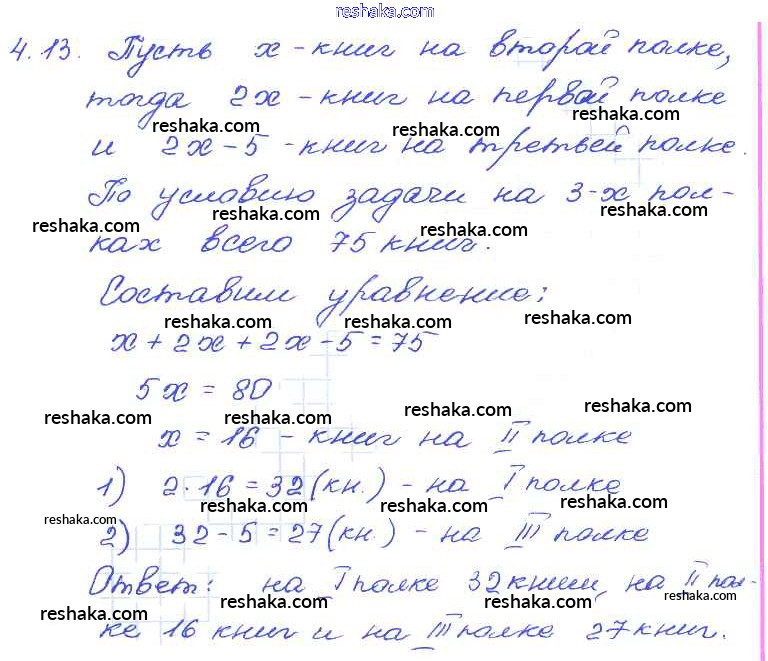 reshaka.com
4.13. Пусть x - книг на второй полке,
тогда 2x - книг на первой полке
reshaka.com reshaka.com
и 2x - 5 - книг на третьей полке.
По условию задачи на 3-х пол-
reshaka.com reshaka.com reshaka.com
ках всего 75 книг.
Составим уравнение:
reshaka.com reshaka.com reshaka.com
x + 2x + 2x - 5 = 75
5x = 80
reshaka.com reshaka.com reshaka.com reshaka.com
x = 16 - книг на II полке
1) 2 · 16 = 32 (кн.) - на I полке
reshaka.com reshaka.com reshaka.com reshaka.com
2) 32 - 5 = 27 (кн.) - на III полке
Ответ: на I полке 32 книги, на II пол-
reshaka.com reshaka.com reshaka.com reshaka.com
ке 16 книг и на III полке 27 книг.